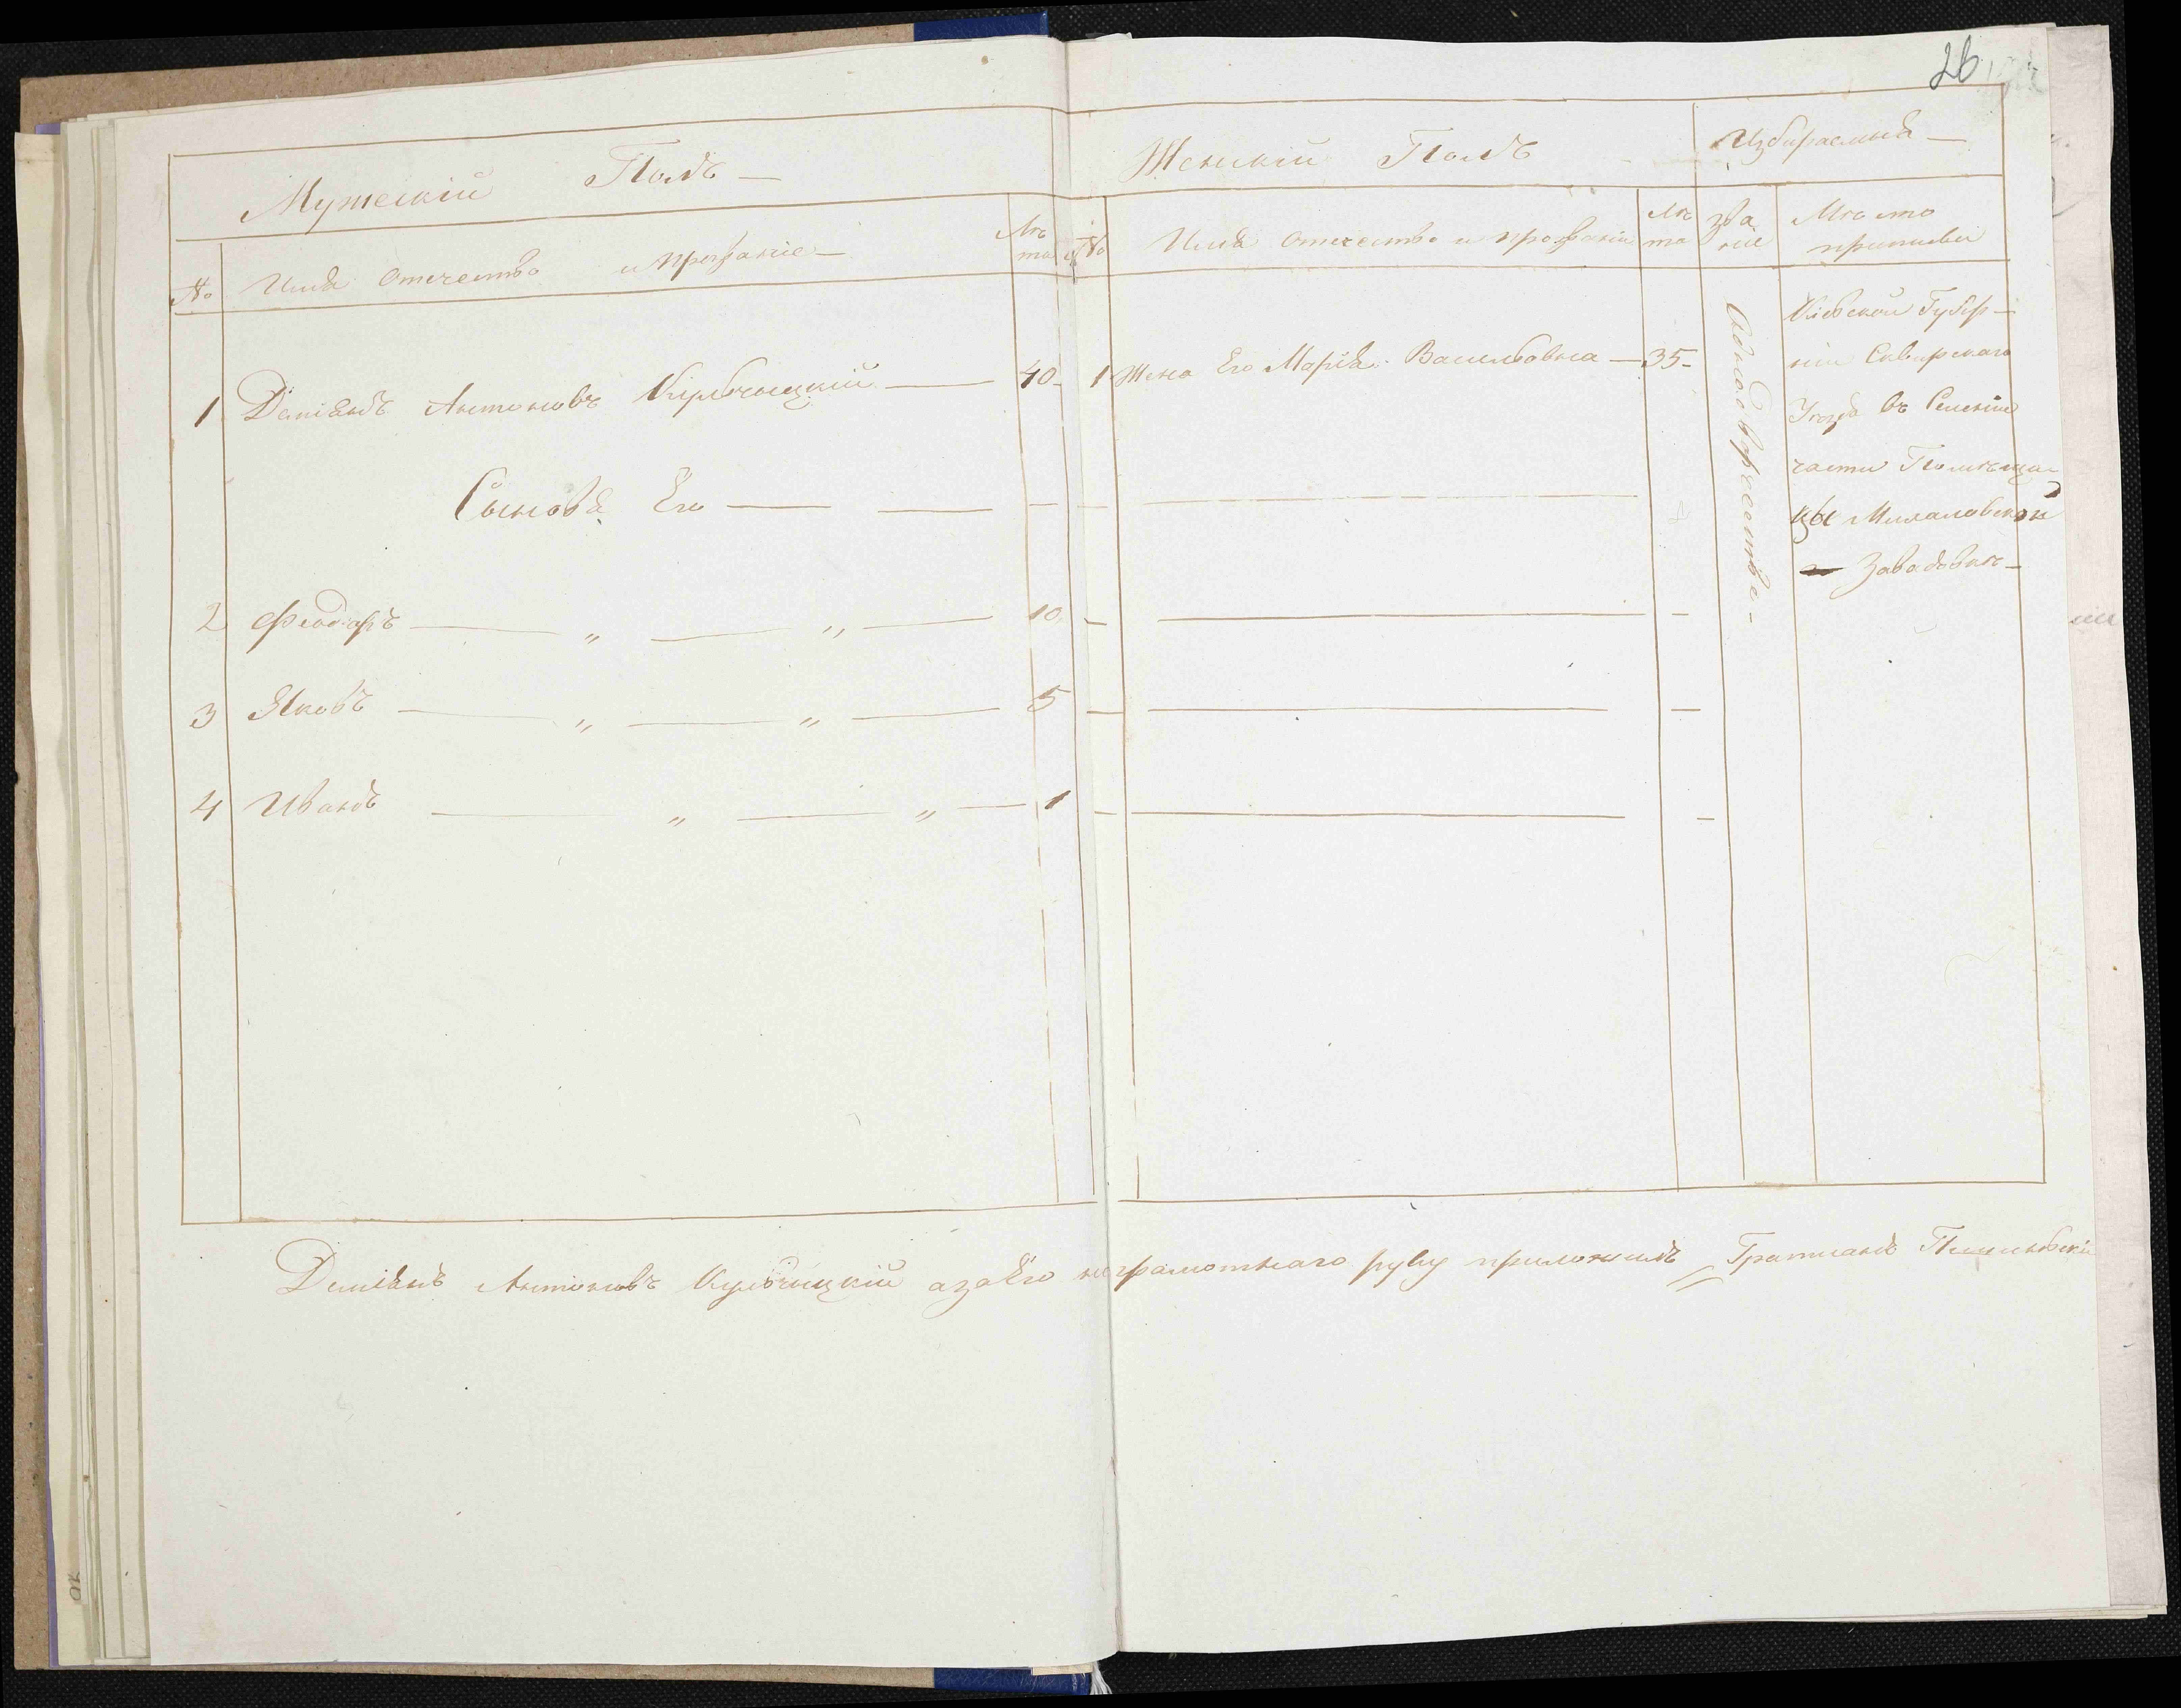 26
Мужескій Полъ —
Женскій Полъ
Избираемыя —
№ Имя Отечество и прозваніе — Лѣ та
№ Имя отечество и прозваніе Лѣ та
Зва ніе
Мѣсто приписки
1 Деміянъ Антоновъ Кульчицкій — 40
1 Жена Его Марія Васильовна — 35
Однодворчество —
Кіевской Губер-
ніи Сквирскаго
Уезда въ Селеніи
части Помѣщи-
цы
Завадовки
Сыновя Его — — —
2 Феодоръ — „ — „ — 10
3 Яковъ — „ — „ — 5
4 Иванъ — „ — „ — 1
Деміянъ Антоновъ Кульчицкій азаЕго неграмотнаго руку приложилъ